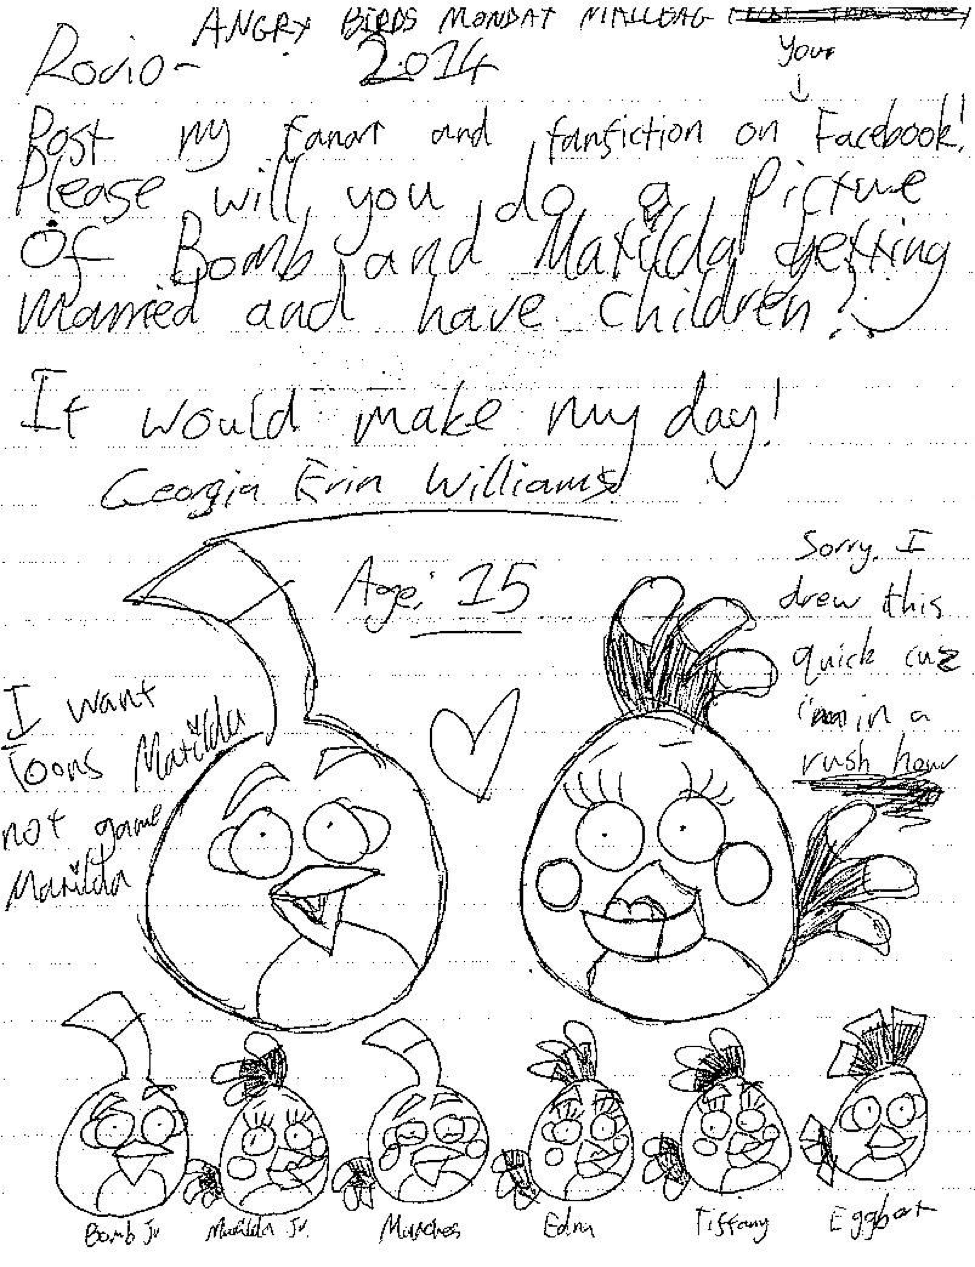 ANGRY BIRDS MONDAY MAILBAG
Rovio - 2014
your
Post my fanart and fanfiction on Facebook!
Please will you do a picture
of Bomb and Matilda getting
married and have children?
It would make my day!
Georgia Erin Williams
Age: 15
Sorry, I
drew this
quick cuz
i'm in a
rush hour
I want
Toons Matilda
not game
Matilda
Bomb Jr Matilda Jr. Munches Edna Tiffany Eggbert